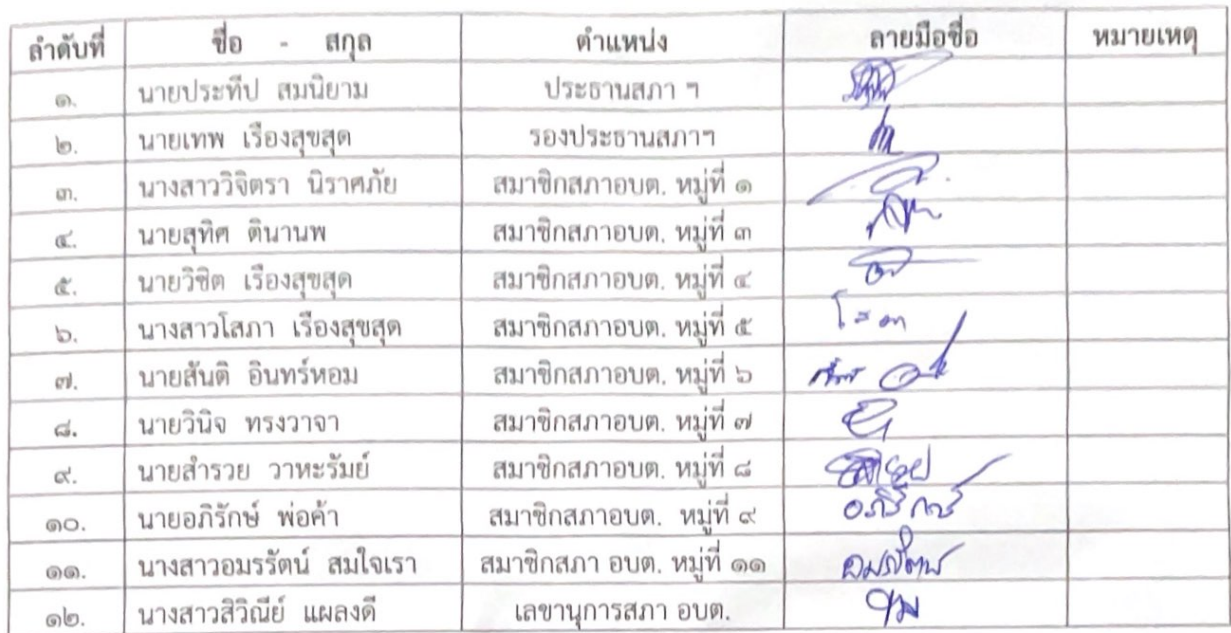 ลำดับที่ ชื่อ - สกุล ตำแหน่ง ลายมือชื่อ หมายเหตุ
๑. นายประทีป สมนิยาม ประธานสภา ฯ
๒. นายเทพ เรืองสุขสุด รองประธานสภาฯ
๓. นางสาววิจิตรา นิราศภัย สมาชิกสภาอบต. หมู่ที่ ๑
๔. นายสุทิศ ตินานพ สมาชิกสภาอบต. หมู่ที่ ๓
๕. นายวิชิต เรืองสุขสุด สมาชิกสภาอบต. หมู่ที่ ๔
๖. นางสาวโสภา เรืองสุขสุด สมาชิกสภาอบต. หมู่ที่ ๕
๗. นายสันติ อินทร์หอม สมาชิกสภาอบต. หมู่ที่ ๖
๘. นายวินิจ ทรงวาจา สมาชิกสภาอบต. หมู่ที่ ๗
๙. นายสำรวย วาหะรัมย์ สมาชิกสภาอบต. หมู่ที่ ๘
๑๐. นายอภิรักษ์ พ่อค้า สมาชิกสภาอบต. หมู่ที่ ๙ อภิรักษ์
๑๑. นางสาวอมรรัตน์ สมใจเรา สมาชิกสภา อบต. หมู่ที่ ๑๑ อมรรัตน์
๑๒. นางสาวสิวิณีย์ แผลงดี เลขานุการสภา อบต.